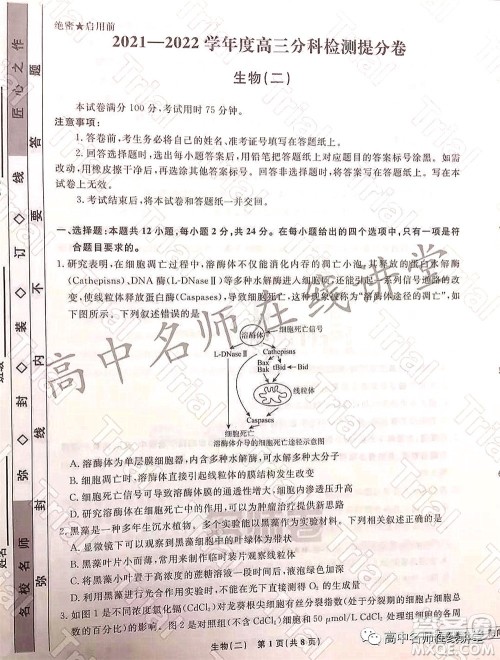 绝密★启用前
2021—2022学年度高三分科检测提分卷
生物(二)
本试卷满分100分,考试用时75分钟。
注意事项:
1. 答卷前,考生务必将自己的姓名、准考证号填写在答题纸上。
2. 回答选择题时,选出每小题答案后,用铅笔把答题纸上对应题目的答案标号涂黑。如需
改动,用橡皮擦干净后,再选涂其他答案标号。回答非选择题时,将答案写在答题纸上。写在本
试卷上无效。
3. 考试结束后,将本试卷和答题纸一并交回。
一、选择题:本题共12小题,每小题2分,共24分。在每小题给出的四个选项中,只有一项是符
合题目要求的。
1. 研究表明,在细胞凋亡过程中,溶酶体不仅能消化内吞的凋亡小泡,其释放的蛋白水解酶
(Cathepisns)、DNA酶(L-DNaseⅡ)等多种水解酶进入细胞质还能引起一系列信号通路的改
变,使线粒体释放蛋白酶(Caspases),导致细胞死亡,这种现象被称为“溶酶体途径的凋亡”,如
下图所示。下列叙述错误的是
溶酶体
细胞死亡信号
L-DNaseⅡ
Cathepisns
Bax
Bak
tBid
Bid
线粒体
Caspases
细胞死亡
溶酶体介导的细胞死亡途径示意图
A. 溶酶体为单层膜细胞器,内含多种水解酶,可水解多种大分子
B. 细胞凋亡过程中,溶酶体直接引起线粒体的膜结构发生改变
C. 细胞死亡信号可导致溶酶体释放多种水解酶,细胞内渗透压升高
D. 以溶酶体为靶点诱导的细胞死亡,可以为肿瘤治疗提供新思路
2. 黑藻是一种多年生沉水植物。多个实验可以黑藻作为实验材料,下列相关叙述错误的是
A. 显微镜下可以观察到黑藻细胞中的叶绿体为带状
B. 黑藻叶片小而薄,常用来制作临时装片观察线粒体
C. 将黑藻叶片置于高浓度的蔗糖溶液一段时间后,可观察到质壁分离现象
D. 利用黑藻进行光合作用实验时,不能在光下直接测得O₂的生成量
3. 如图1是不同浓度氯化镉(CdCl₂)对龙葵根尖细胞有丝分裂指数(处于分裂期的细胞占细胞总
数的百分比)的影响。图2是对照不含(CdCl₂)溶液的细胞和50 μmol/L CdCl₂溶液中培养的各周
生物(二) 第1页(共8页)
高中名师在线讲堂
高中名师在线讲堂
匠心之作
名校名师
弥封线内不要答题
弥◇封◇装◇订◇线
姓名
Trial